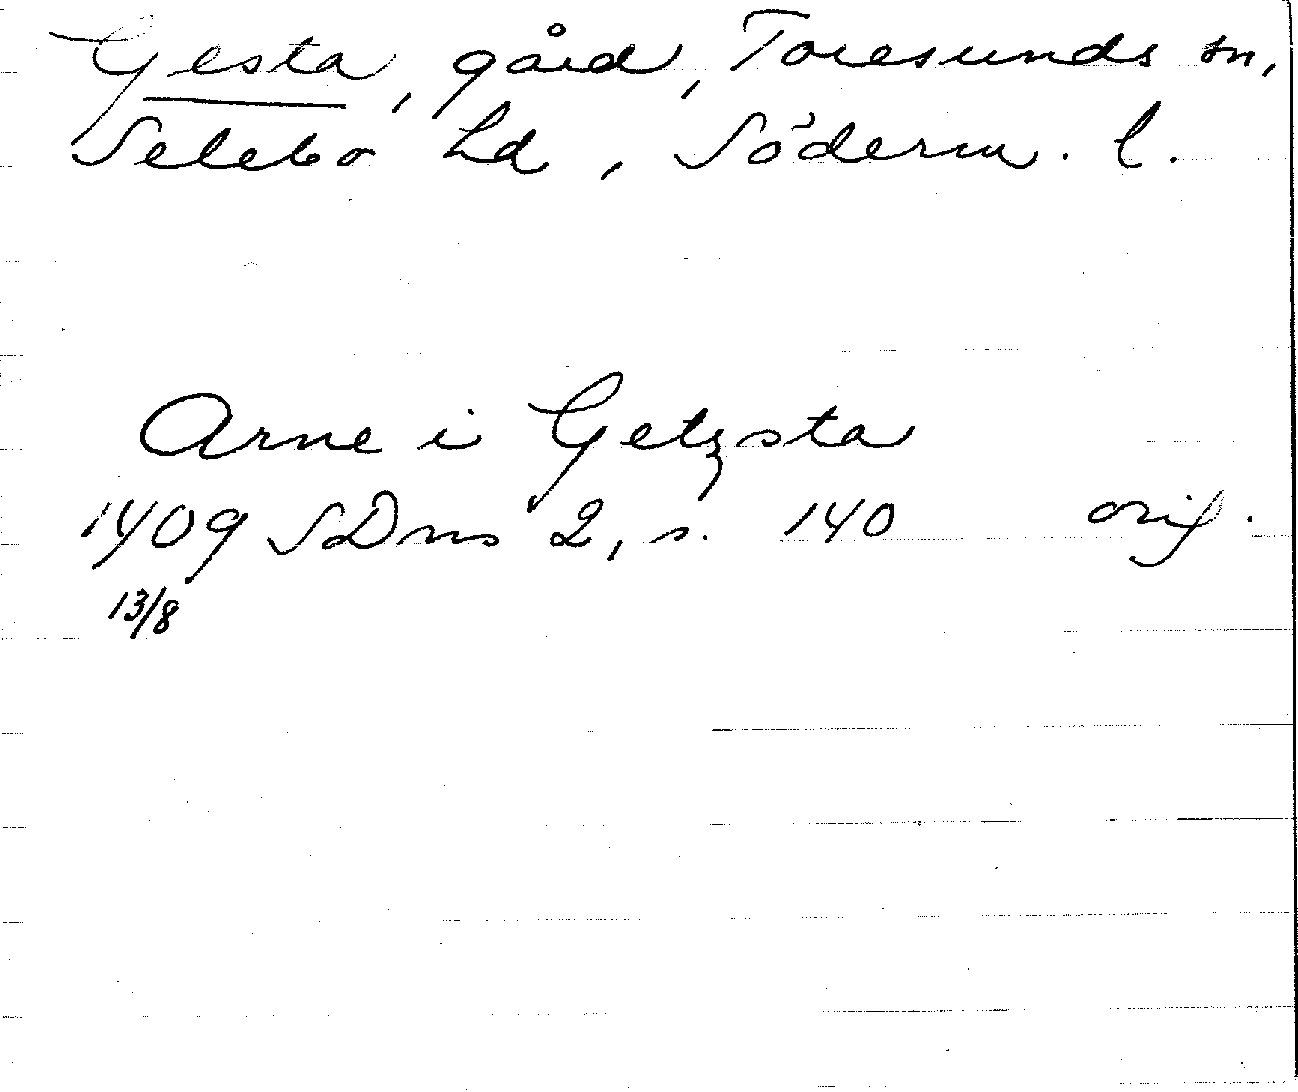 Gesta, gård, Toresunds sn,
Selebo hd, Söderm. l.
Arne i Getzsta
1409 SDns 2, s. 140 orig.
13/8